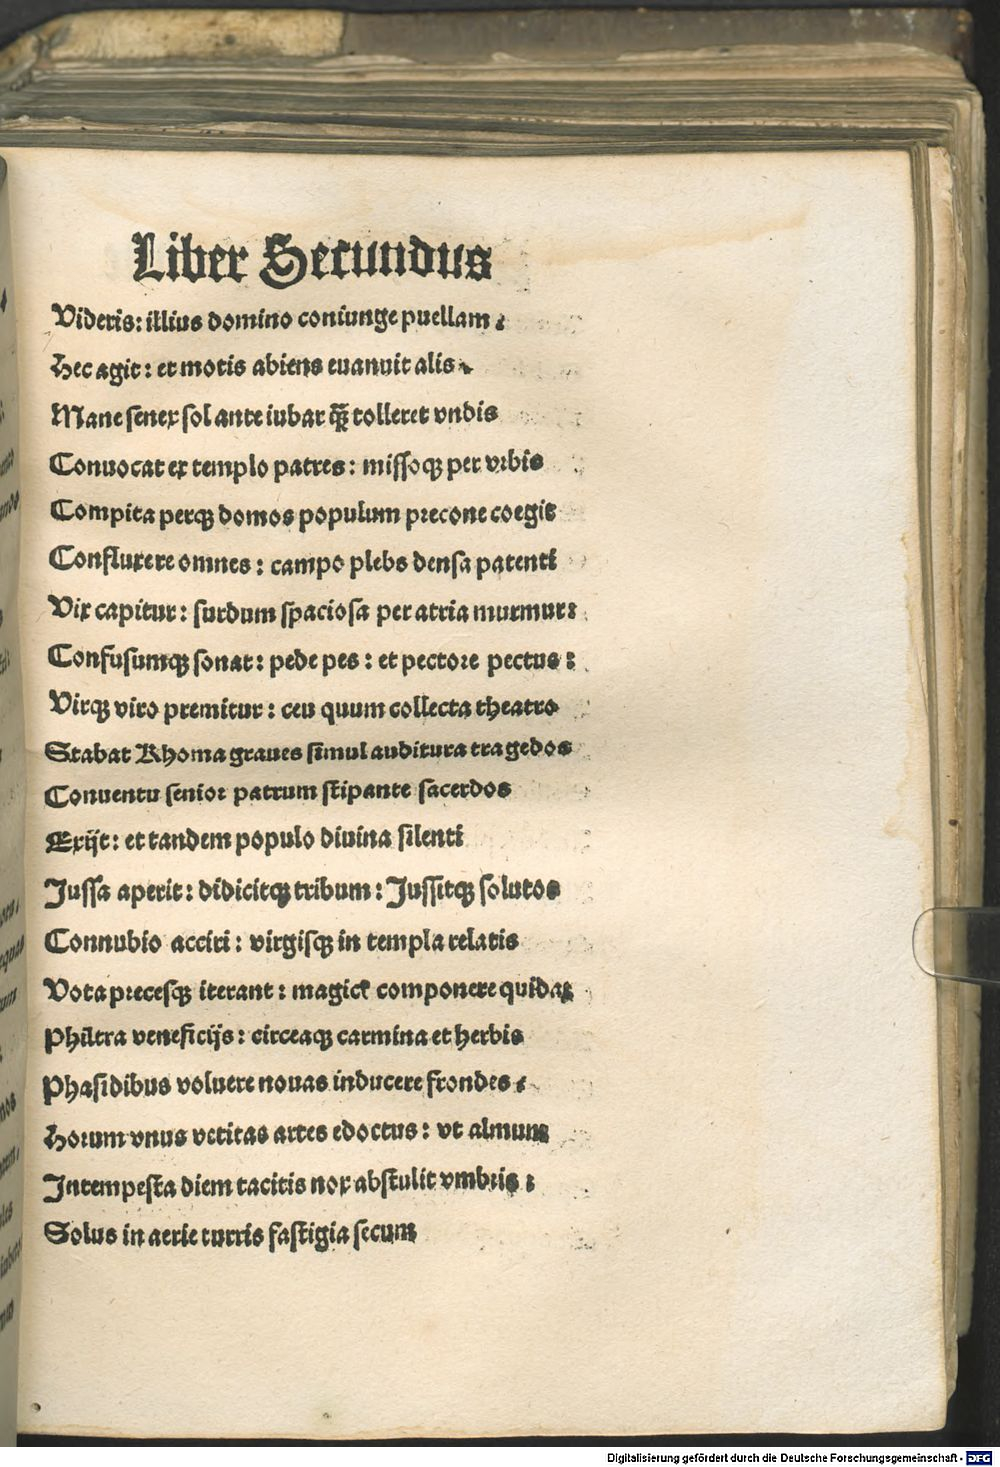 Liber Secundus
Videris: illius domino coniunge puellam.
Hec agit: et motis abiens euanuit alis.
Mane senex sol ante iubar q̃ꝫ tolleret vndis
Conuocat ex templo patres: missoqꝫ per vrbis
Compita perqꝫ domos populum precone coegit
Confluxere omnes: campo plebs densa patenti
Vix capitur: surdum spaciosa per atria murmur:
Confusumqꝫ sonat: pede pes: et pectore pectus:
Virqꝫ viro premitur: ceu quum collecta theatro
Stabat Rhoma graues simul auditura tragedos
Conuentu senior patrum stipante sacerdos
Exijt: et tandem populo diuina silenti
Jussa aperit: didicitqꝫ tribum: Jussitqꝫ solutos
Connubio acciri: virgisqꝫ in templa relatis
Vota precesqꝫ iterant: magicę componere quidaꝫ
Philtra veneficijs: circeaqꝫ carmina et herbis
Phasidibus voluere nouas inducere frondes.
Horum vnus vetitas artes edoctus: vt almum
Intempesta diem tacitis nox abstulit vmbris:
Solus in aerie turris fastigia secum
Digitalisierung gefördert durch die Deutsche Forschungsgemeinschaft - DFG